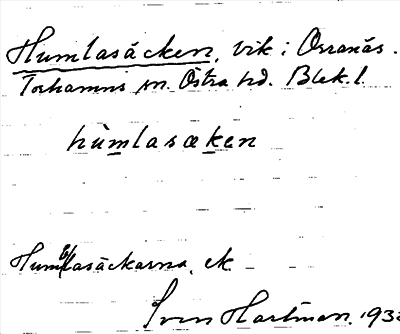 Humlasäcken, vik i Orranäs.
Torhamns sn. Östra hd. Blek. l.
hùmlasæken
Humblasäckarna, ek
Sven Hartman. 193